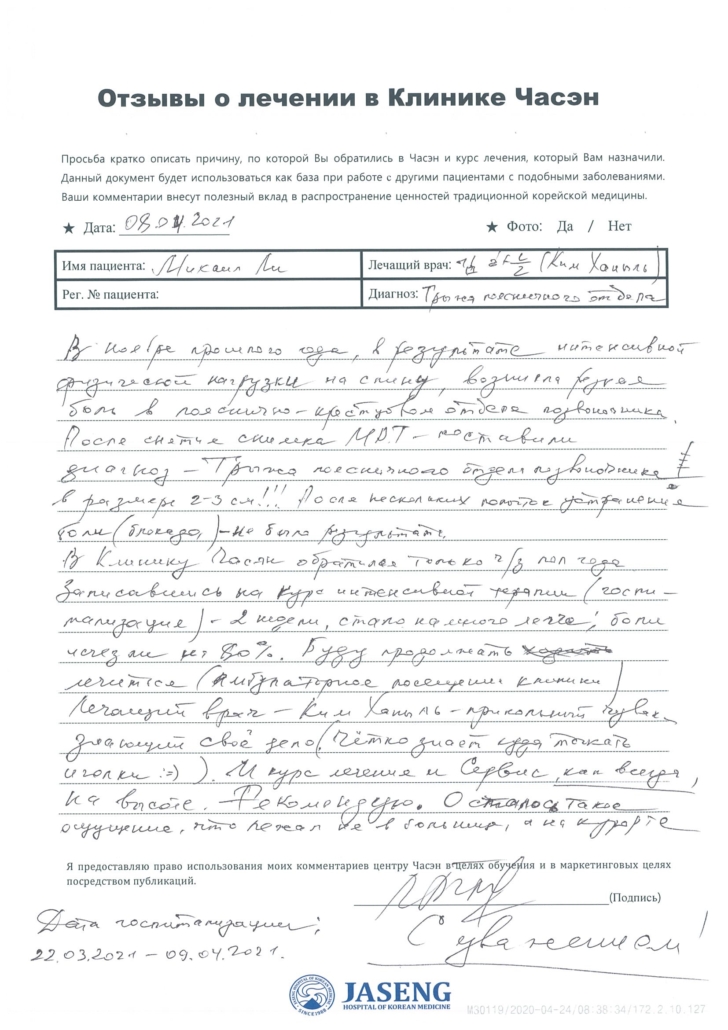 Отзывы о лечении в Клинике Часэн
Просьба кратко описать причину, по которой Вы обратились в Часэн и курс лечения, который Вам назначили.
Данный документ будет использоваться как база при работе с другими пациентами с подобными заболеваниями.
Ваши комментарии внесут полезный вклад в распространение ценностей традиционной корейской медицины.
★ Дата: 08.04.2021 ★ Фото: Да / Нет
Имя пациента: Михаил Ли Лечащий врач: (Ким Ханыль)
Рег. № пациента: Диагноз: Грыжа поясничного отдела
В ноябре прошлого года, в результате интенсивной
физической нагрузки на спину, возникла резкая
боль в пояснично-крестцовом отделе позвоночника.
После снятия снимка МРТ - поставили
диагноз - Грыжа поясничного отдела позвоночника
в размере 2-3 см!!! После нескольких попыток устранения
боли (блокада) - не было результата.
В Клинику Часэн обратился только ч/з пол года
Записавшись на курс интенсивной терапии (госпи-
тализация) - 2 недели, стало намного легче, боли
исчезли на 80%. Буду продолжать
лечиться (амбулаторное посещение клиники)
Лечащий врач - Ким Ханыль - прикольный чувак,
знающий своё дело (Чётко знает куда тыкать
иголки :=) ). И курс лечения и Сервис, как всегда,
на высоте. Рекомендую. Осталось такое
ощущение, что лежал не в больнице, а на курорте
Я предоставляю право использования моих комментариев центру Часэн в целях обучения и в маркетинговых целях
посредством публикаций.
(Подпись)
Дата госпитализации: С уважением!
22.03.2021 - 09.04.2021.
JASENG
HOSPITAL OF KOREAN MEDICINE
SINCE 1988
M30119/2020-04-24/08:38:34/172.2.10.127